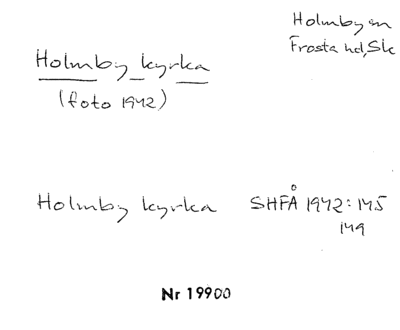 Holmby sn
Frosta hd, Sk
Holmby kyrka
(foto 1942)
Holmby kyrka SHFÅ 1942:145
149
Nr 19900